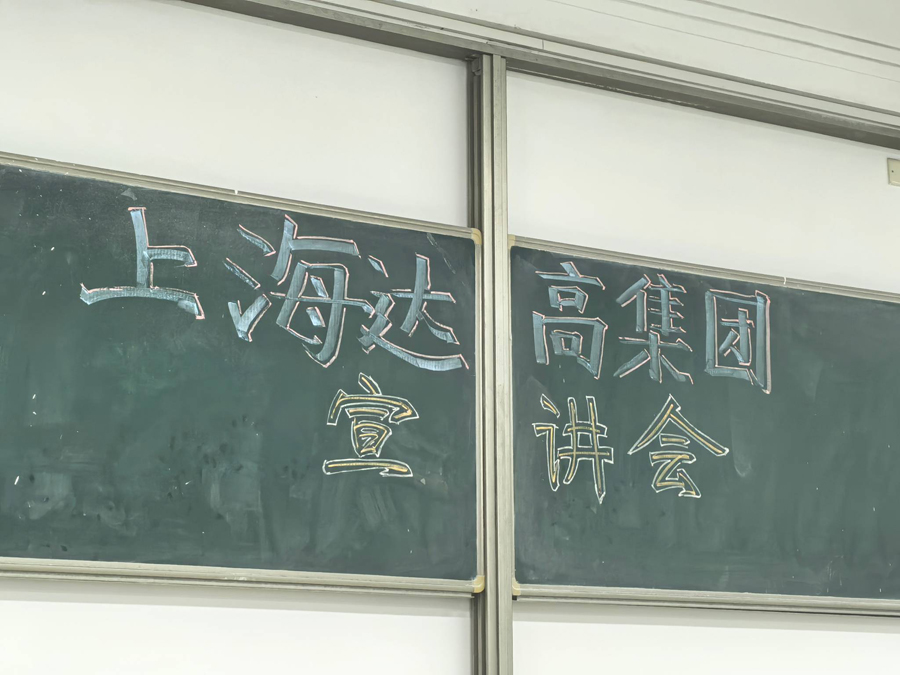 上海达高集团
宣讲会